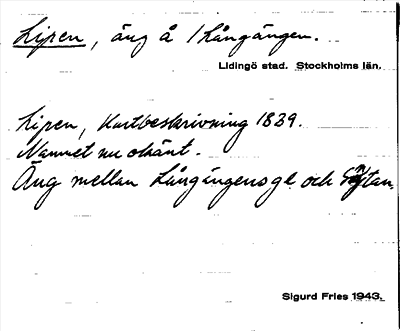 Lipen, äng å Långängen.
Lidingö stad. Stockholms län.
Lipen, Kartbeskrivning 1839.
Namnet nu okänt.
Äng mellan Långängens gl. och
Sigurd Fries 1943.